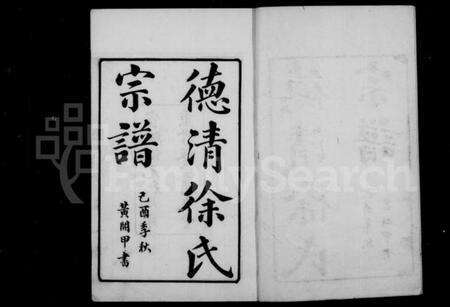 德清徐氏
宗譜
己酉季秋
黃開甲書
FamilySearch